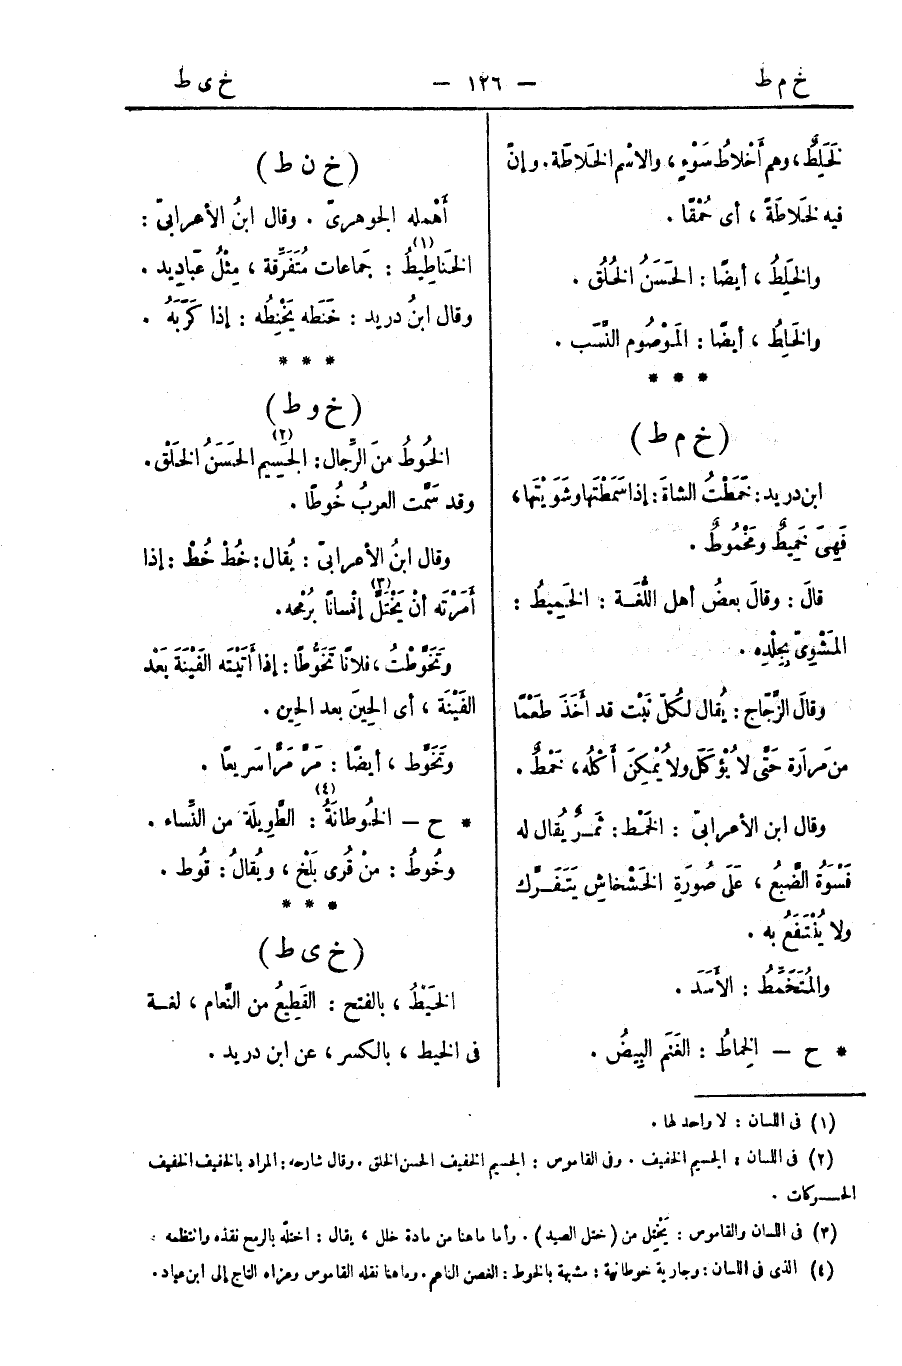 خ م ط
— ١٢٦ —
خ ى ط
لَخَلِطٌ، وهم أَخْلاطُ سَوْءٍ، والاسْم الخَلاطَة. وإنّ
فيه لخَلَاطَةً، أى حُمْقًا.
والخَلِطُ، أيضًا: الحَسَنُ الخُلُق.
والخَلِطُ، أيضًا: المَوْصُوم النَّسَب.
* * *
( خ م ط )
ابن دريد: خَمَطْتُ الشاةَ: إذا سَمَطْتَها وشَوَيْتَها،
فَهِىَ خَمِيطٌ ومَخْمُوطٌ.
قالَ: وقالَ بعضُ أهل اللُّغَة: الخَمِيطُ:
المَشْوِىّ بِجِلْدِه.
وقالَ الزَّجّاج: يُقال لكُلّ نَبْت قد أَخَذَ طَعْمًا
من مَرارَة حَتَّى لا يُؤْكَلَ ولا يُمْكِنَ أَكْلُه، خَمْطٌ.
وقال ابن الأعرابىّ: الخَمْط: ثَمَرٌ يُقال له
فَسْوَةُ الضَّبُعُ، عَلَى صُورَةِ الخَشْخاشِ يَتَفَرَّك
ولا يُنْتَفَعُ به.
والمُتَخَمِّطُ: الأَسَدَ.
* ح — الخِماطُ: الغَنَم البِيضُ.
( خ ن ط )
أَهْمله الجوهرىّ. وقال ابنُ الأعرابىّ:
الخَناطِيطُ (١): جَماعات مُتَفَرِّقة، مِثْلُ عَبادِيد.
وقال ابنُ دريد: خَنَطه يَخْنِطُه: إذا كَرَبَهُ.
* * *
( خ و ط )
الخُوطُ منَ الرِّجال: الجَسِيم (٢) الحَسَنُ الخَلْق.
وقد سَمَّت العربُ خُوطًا.
وقال ابنُ الأعرابىّ: يُقال: خُطْ خُطْ: إذا
أَمَرْتَه أنْ يَخْتَلَّ (٣) إنْسانًا بُرْمحه.
وتَخَوَّطْتُ، فلانًا تَخَوُّطًا: إذا أَتَيْتَه الفَيْنَةَ بَعْد
الفَيْنَة، أى الحِينَ بعد الحِين.
وتَخَوَّط، أيضًا: مَرَّ مَرًّا سَرِيعًا.
* ح — الخُوطانَةُ (٤): الطَّوِيلَة من النِّساء.
وخُوطُ: منْ قُرى بَلْخ، ويُقالُ: قُوط.
* * *
( خ ى ط )
الخَيْطُ، بالفتح: القَطِيعُ من النَّعام، لغة
فى الخيط، بالكسر، عن ابن دريد.
(١) فى اللسان: لا واحد لها.
(٢) فى اللسان: الجسيم الخفيف. وفى القاموس: الجسيم الخفيف الحسن الخلق. وقال شارحه: المراد بالخفيف الخفيف
الحركات.
(٣) فى اللسان والقاموس: يَخْتِل من (ختل الصيد). وأما ماهنا من مادة خلل، يقال: اختلّه بالرمح نفذه وانتظمه.
(٤) الذى فى اللسان: وجارية خوطانية: مشبهة بالخوط: الغصن الناعم. وماهنا نقله القاموس وعزاه التاج إلى ابن عباد.